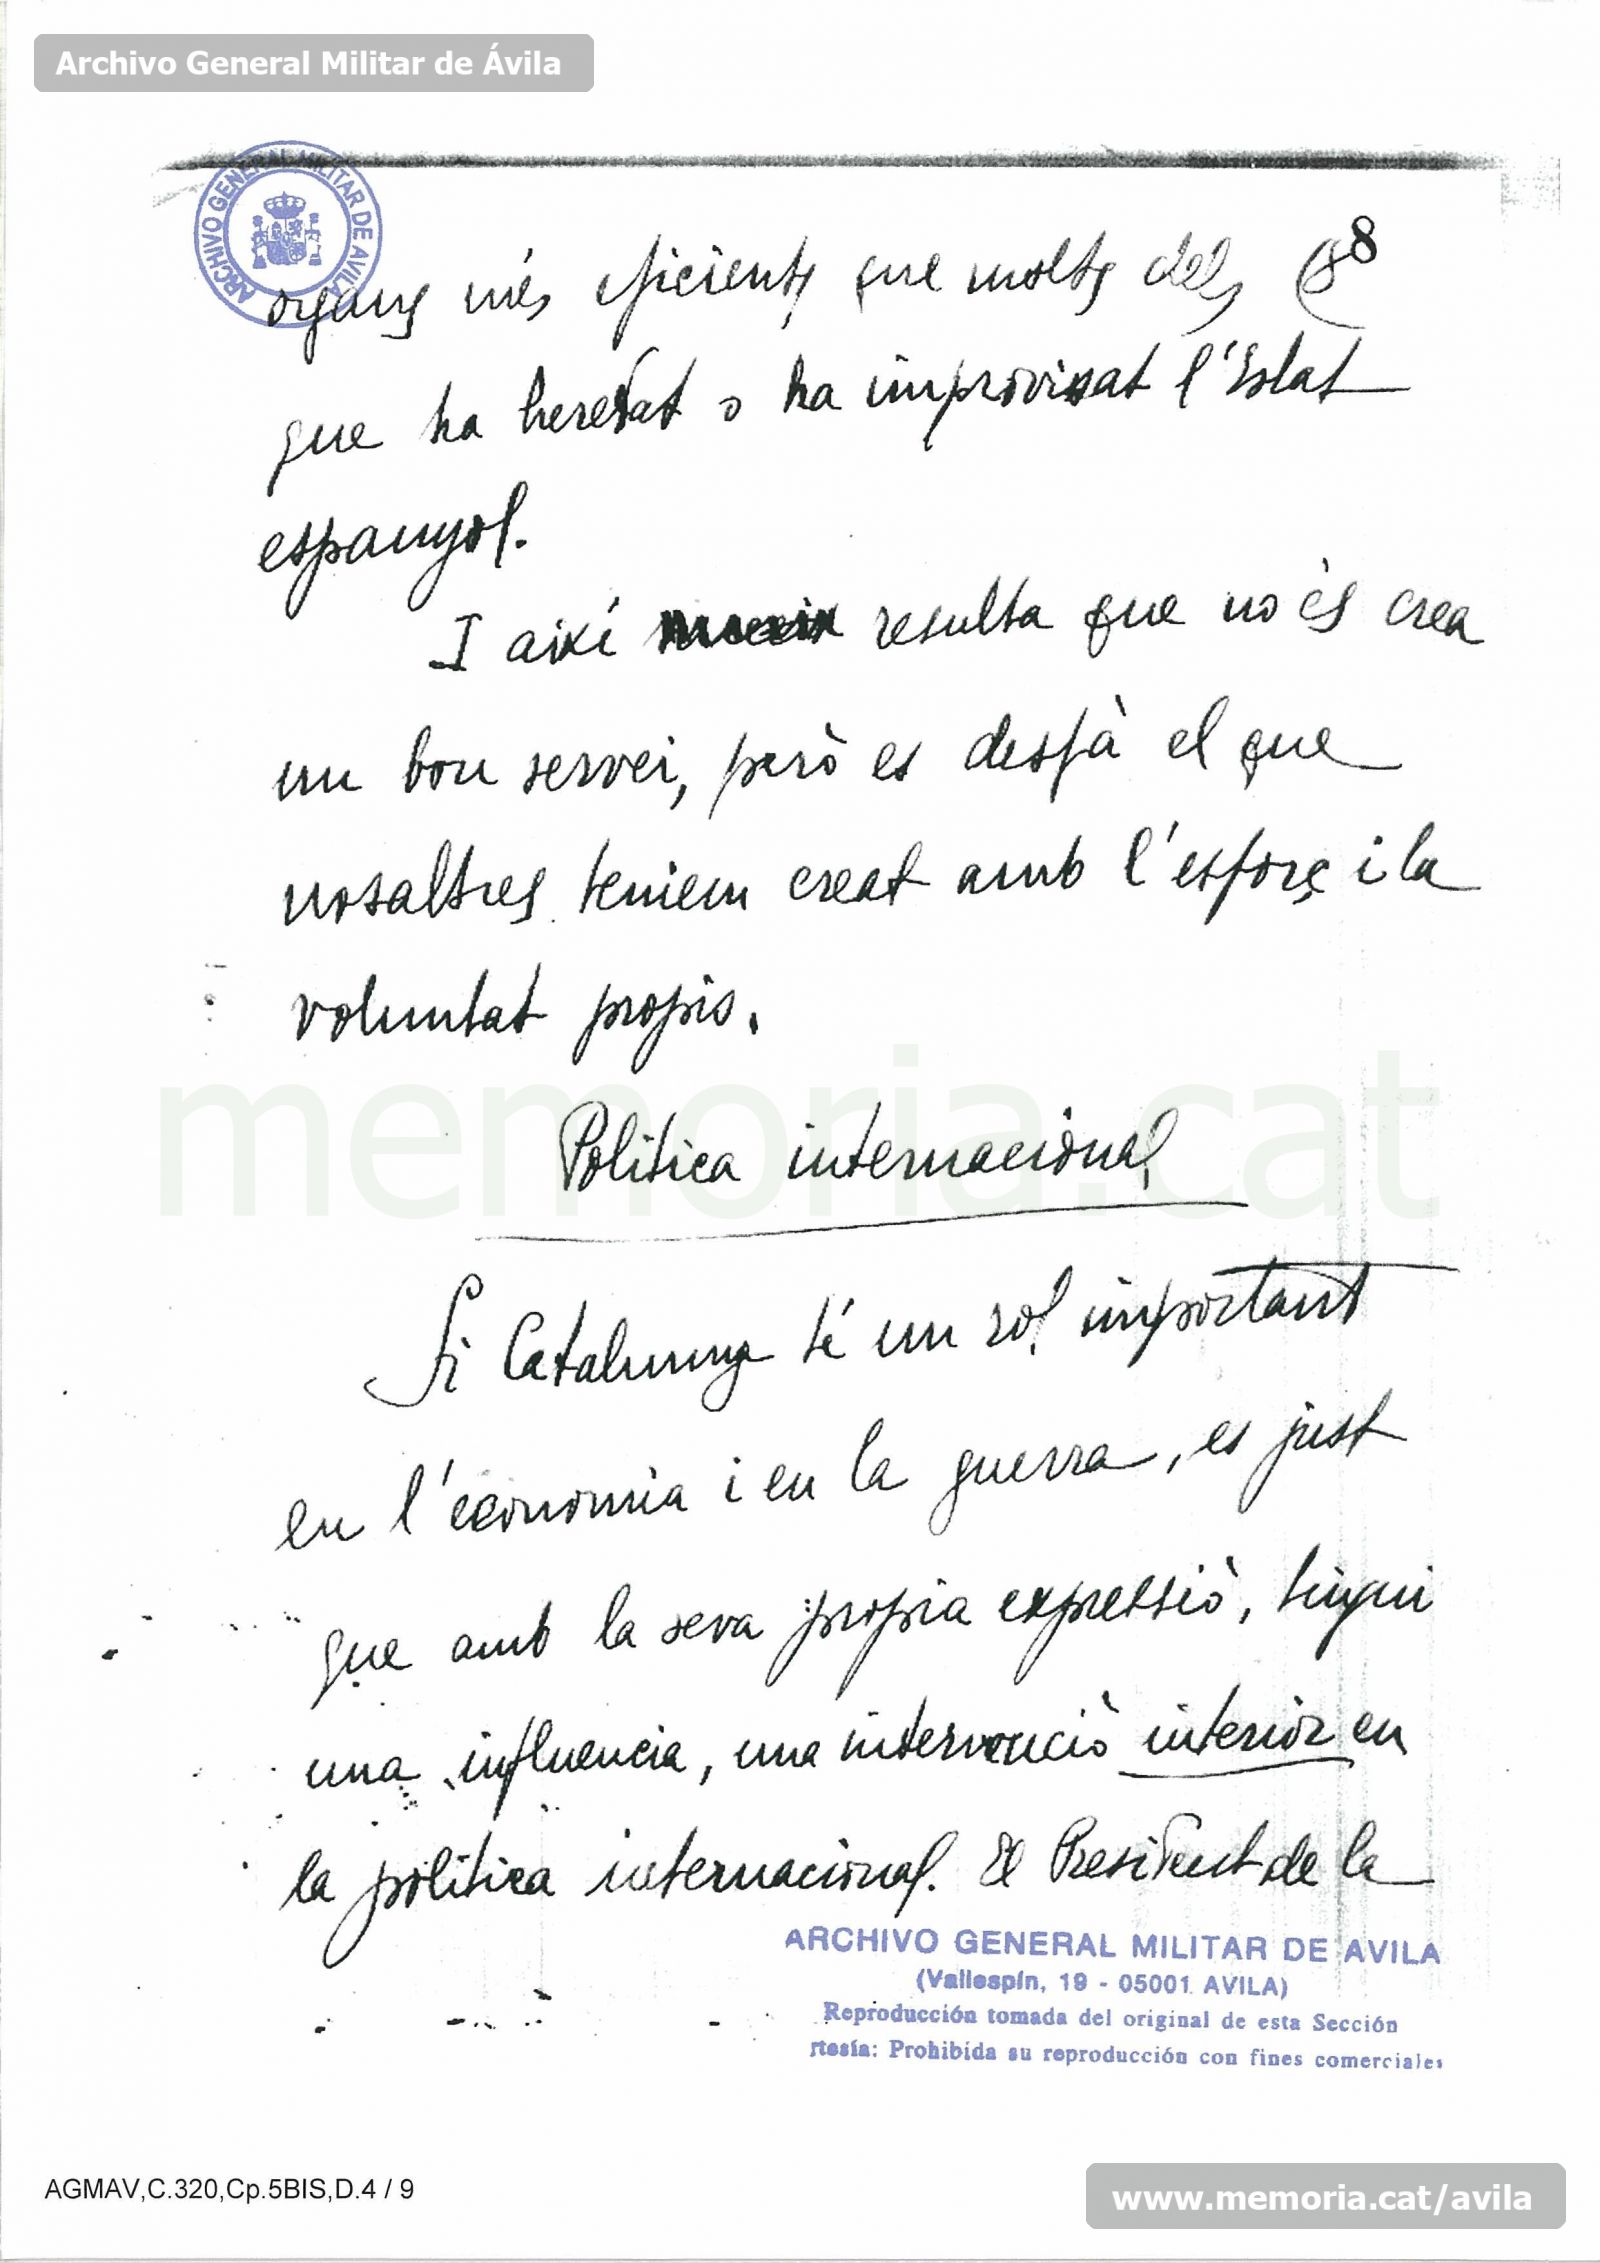 Archivo General Militar de Ávila
ARCHIVO GENERAL MILITAR DE AVILA
8
organs més eficients que molts dels 8
que ha heretat o ha improvisat l'Estat
espanyol.
I així resulta que no és crea
un bon servei, però es desfà el que
nosaltres teniem creat amb l'esforç i la
voluntat propis.
memoria.cat
Politica internacional
Si Catalunya té un rol important
en l'economia i en la guerra, es just
que amb la seva propia expressiò, tingui
una influencia, una intervenciò interior en
la politica internacional. El President de la
ARCHIVO GENERAL MILITAR DE AVILA
(Vallespín, 19 - 05001 AVILA)
Reproducción tomada del original de esta Sección
rtesía: Prohibida su reproducción con fines comerciales
AGMAV,C.320,Cp.5BIS,D.4 / 9
www.memoria.cat/avila